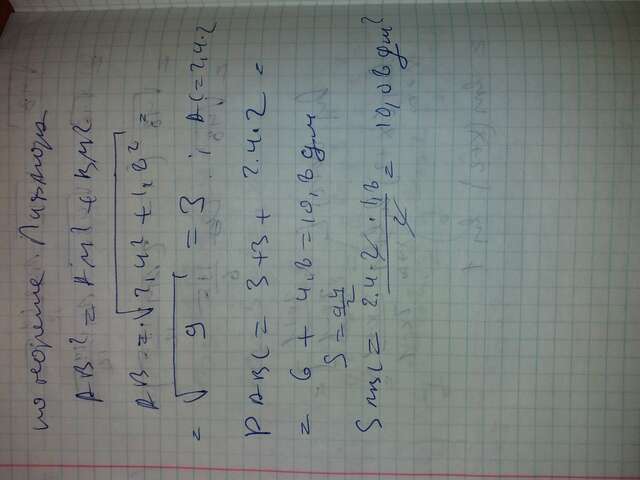 по теореме Пифагора
AB² = AM² + BM²
AB = √2,4² + 1,8² =
= √9 = 3 ; AC = 2,4·2
P ABC = 3+3+ 2.4·2 =
= 6 + 4,8 = 10,8 дм
S = ah/2
S ABC = 2.4·2·1,8/2 = 10,08 дм²